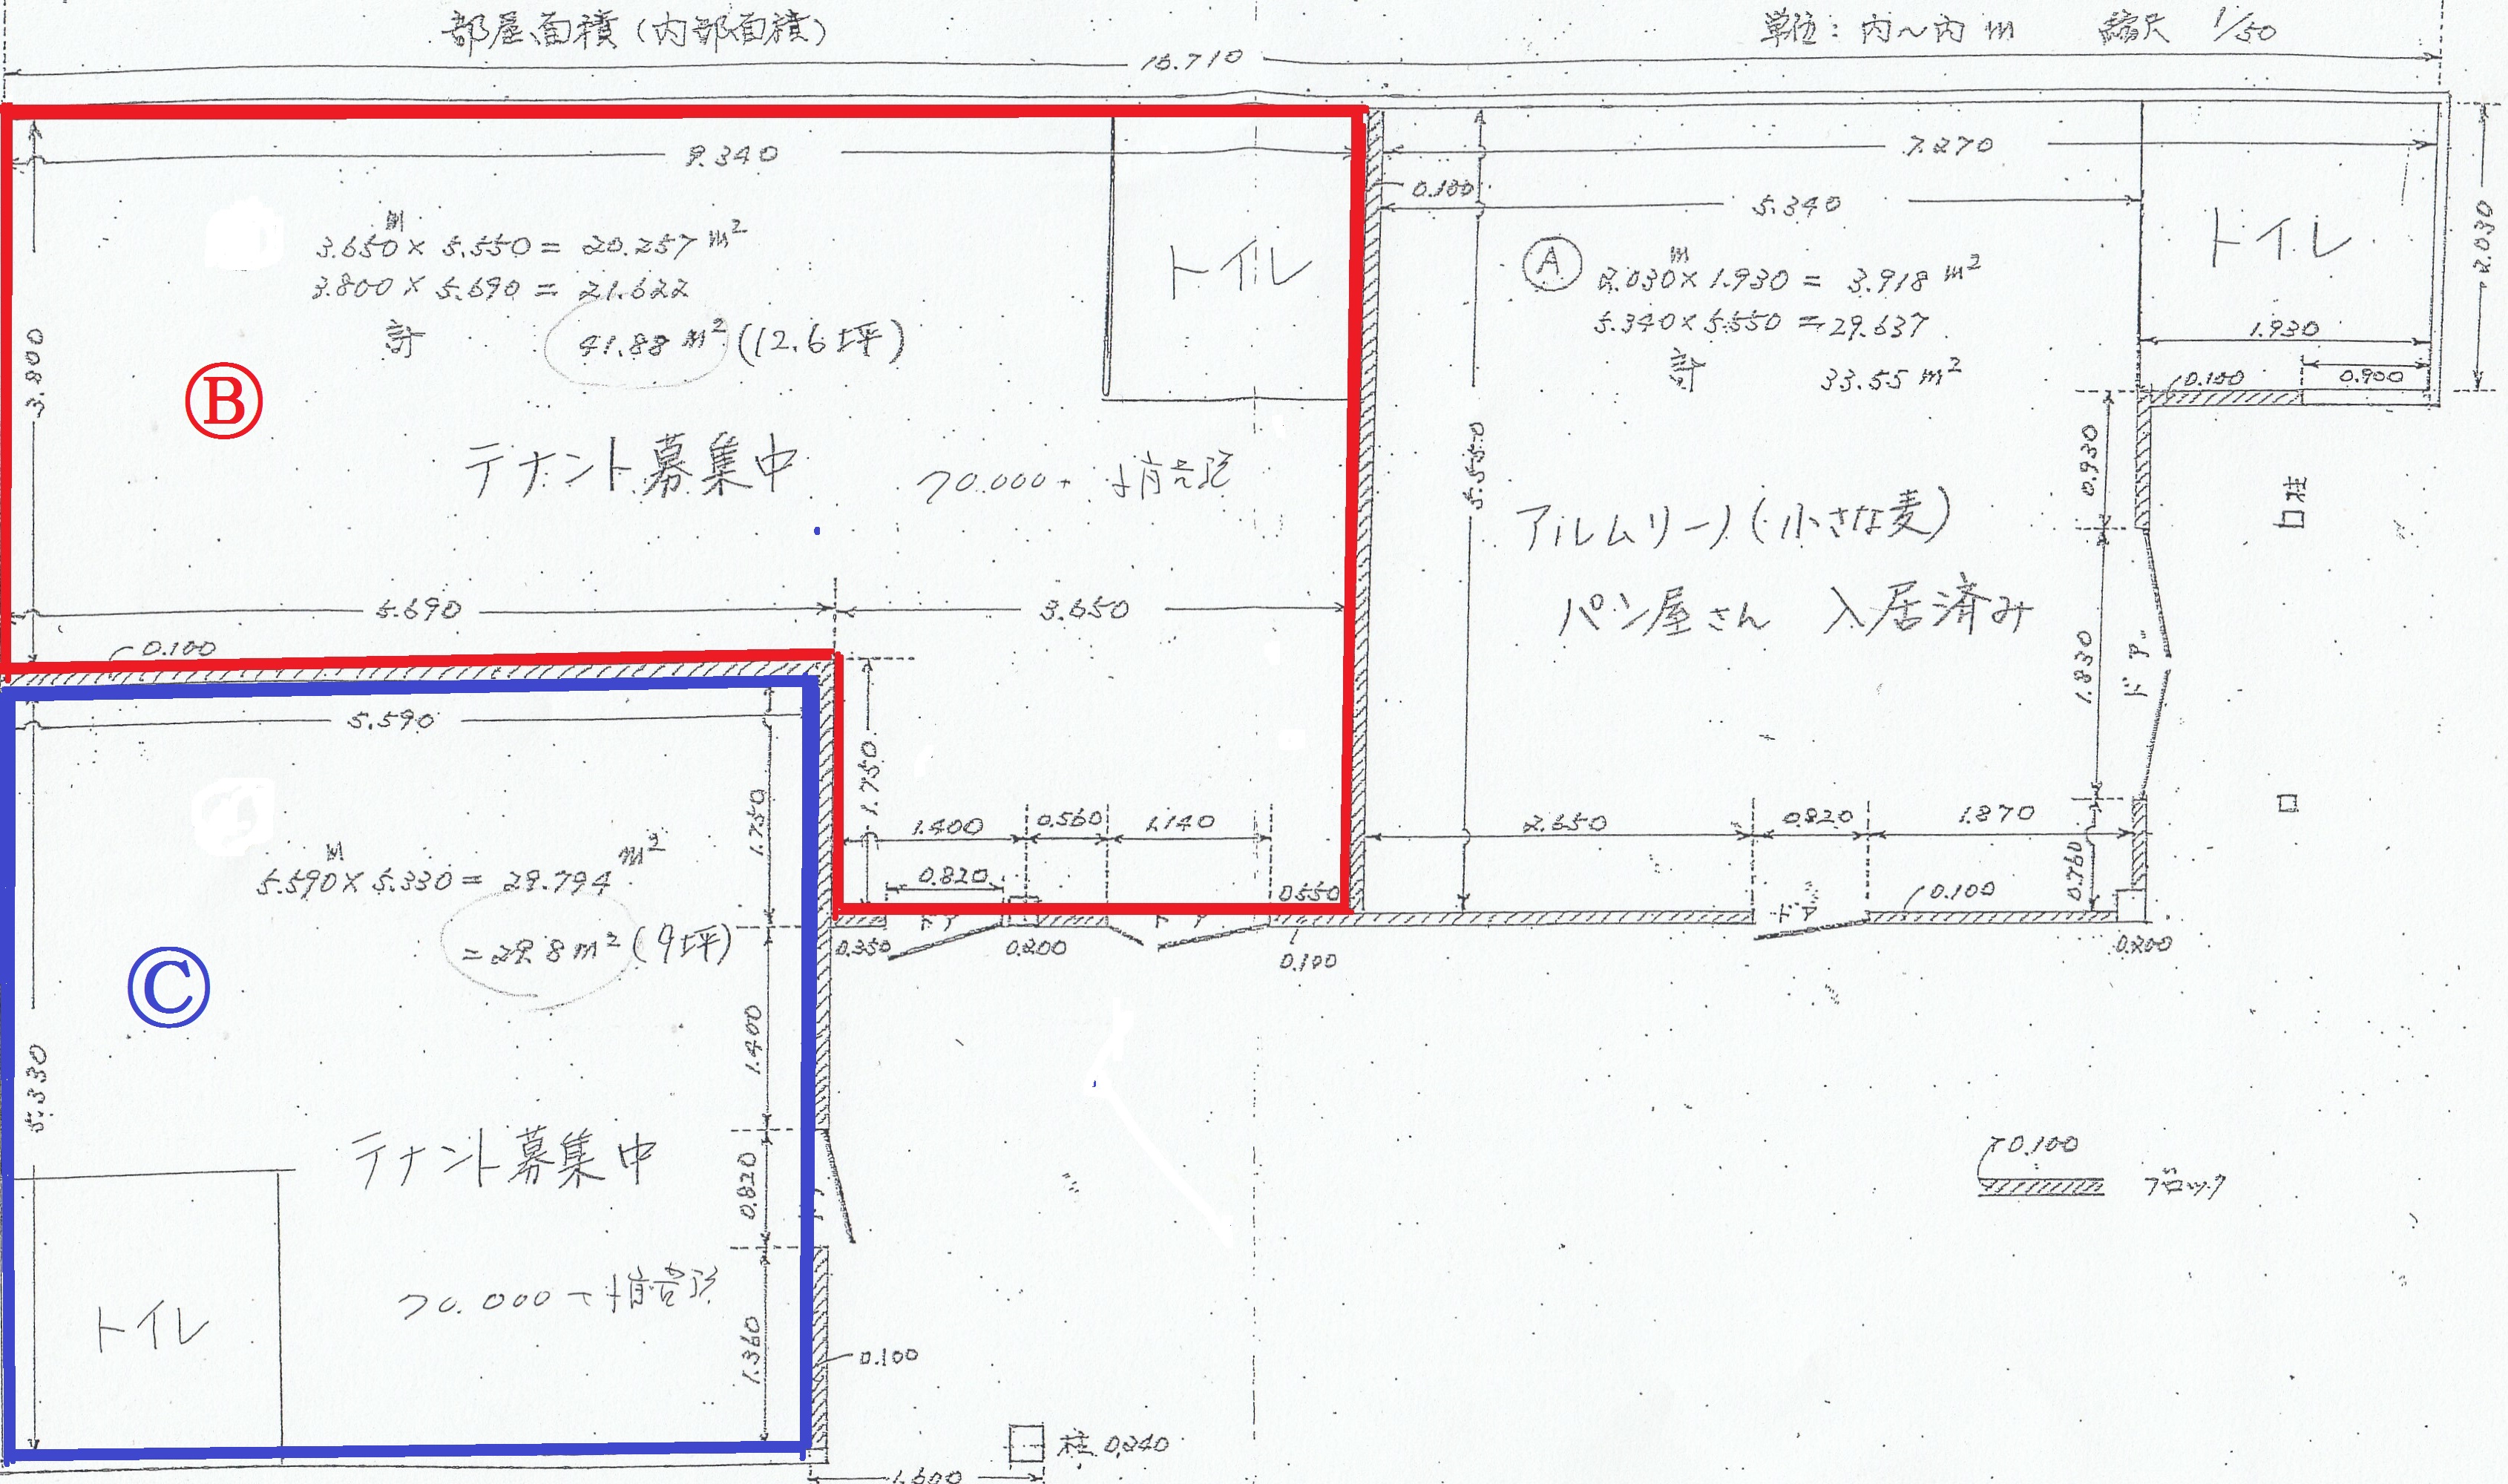 部屋面積（内部面積）
単位：内～内 m　縮尺 1/50
16.710
9.340
7.270
0.100
5.340
m
3.650 × 5.550 = 20.257 m²
3.800 × 5.690 = 21.622
計 41.88 m² (12.6坪)
トイレ
Ⓐ
m
2.030 × 1.930 = 3.918 m²
5.340 × 5.550 = 29.637
計 33.55 m²
トイレ
2.030
1.930
0.100
0.900
3.800
Ⓑ
テナント募集中
70.000+
5.550
0.930
柱
アルムリーノ（小さな麦）
パン屋さん 入居済み
5.690
3.650
0.100
1.830
ドア
5.590
1.750
1.750
1.400
0.560
1.140
2.650
0.820
1.870
0.760
m
5.590 × 5.330 = 29.794 m²
= 29.8 m² (9坪)
0.820
0.550
0.100
ドア
ドア
ドア
0.350
0.200
0.100
0.200
Ⓒ
5.330
1.400
テナント募集中
0.820
0.100
ブロック
70.000+
トイレ
1.360
0.100
柱 0.240
1.600